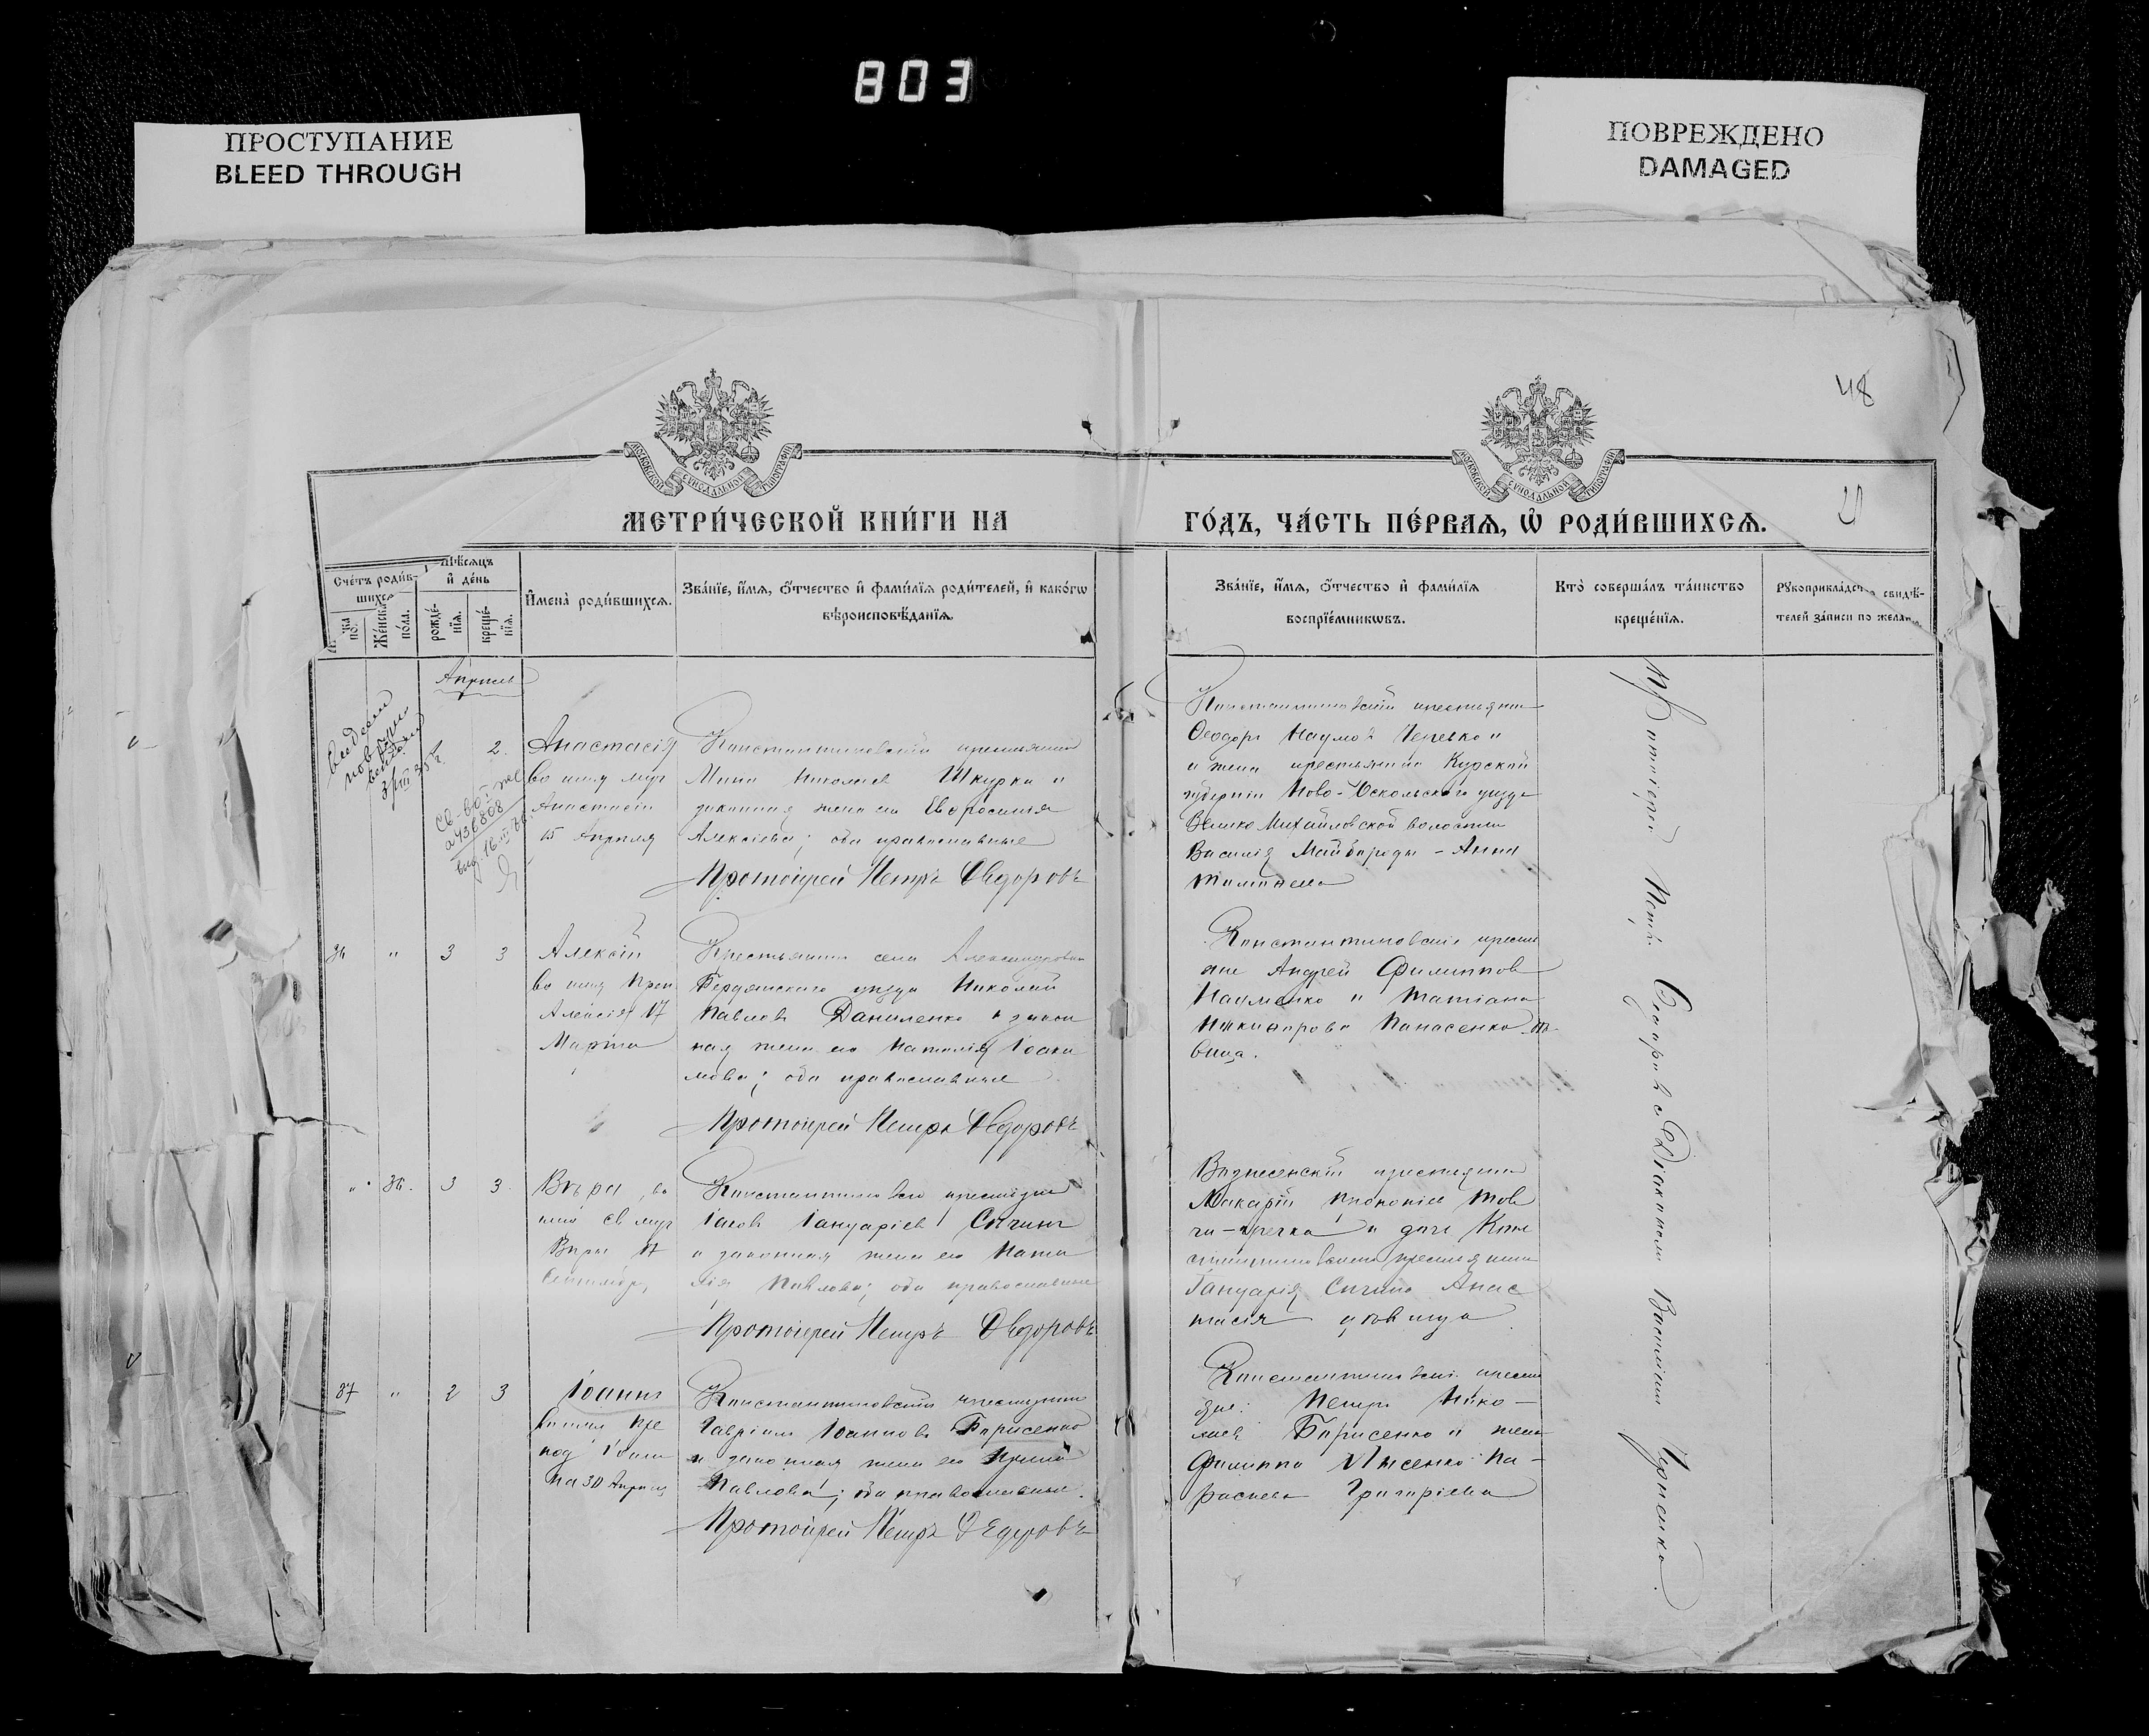 803
ПРОСТУПАНИЕ
BLEED THROUGH
ПОВРЕЖДЕНО
DAMAGED
48
МОСКОВСКОЙ СѴНОДАЛЬНОЙ ТИПОГРАФІИ
МОСКОВСКОЙ СѴНОДАЛЬНОЙ ТИПОГРАФІИ
МЕТРИ́ЧЕСКОЙ КНИ́ГИ НА
ГО́ДЪ, ЧА́СТЬ ПЕ́РВАѦ, Ѡ҆ РОДИ́ВШИХСѦ.
Сче́тъ роди́в-
шихсѧ
Же́нска
по́ла.
Мѣ́сѧцъ
и҆ де́нь
рожде́-
нїѧ.
креще́-
нїѧ.
И҆мена̀ роди́вшихсѧ.
Зва́нїе, и҆́мѧ, ѻ҆́тчество и҆ фами́лїѧ роди́телей, и҆ како́гѡ
вѣроисповѣ́данїѧ.
Зва́нїе, и҆́мѧ, ѻ҆́тчество и҆ фами́лїѧ
воспрїе́мникѡвъ.
Кто̀ соверша́лъ та́инство
креще́нїѧ.
Рꙋкоприкла́дст свидѣ́-
телей за́писи по жела
Апрель
2.
Анастасія
во имя муч
Анастасіи
15 Апреля
Константиновскій крестьянинъ
Николаев Шкурка и
законная жена его Евфросинія
Алексіева; оба православные
Протоіерей Петръ Ѳедоровъ
Константиновскій крестьянин
Ѳеодоръ Наумов
и жена крестьянина Курской
губерніи Ново-Оскольского уезда
Велико Михайловской волости
Василія Майбороды - Анна
36 " 3 3
Алексій
во имя Преп
Алексія 17
Марта
Крестьянинъ села Александровки
Бердянского уезда Николай
Павлов Даниленко и закон
ная жена его Наталія Іоаки
мова; оба православные
Протоіерей Петръ Ѳедоровъ
Константиновскіе кресть
яне Андрей Филиппов
Науменко и Татіана
Никифорова Панасенко де-
вица.
" 36. 3 3.
Вѣра, во
имя св муч
Веры 17
Сентября
Константиновскій крестьянин
Іаков Іануаріев Сичинъ
и законная жена его Ната
лія Павлова; оба православные
Протоіерей Петръ Ѳедоровъ
Вознесенскій крестьянин
Макарій Прокопіев Тов
и дочь Кон
стантиновского крестьянина
Іануарія Сичина Анас
тасія девица
37 " 2 3
Іоаннъ
во имя Пре
под Іоан
на 30 Апреля
Константиновскій крестьянин
Гавріил Іоаннов Борисенко
и законная жена его Ирина
Павлова; оба православные.
Протоіерей Петръ Ѳедоровъ
Константиновскіе кресть
яне: Петръ Нико-
лаев Борисенко и жена
Филиппа Лисенко Па-
раскева Григоріева
Протоіерей Петръ Ѳедоровъ с Діакономъ Василіем Черненко.